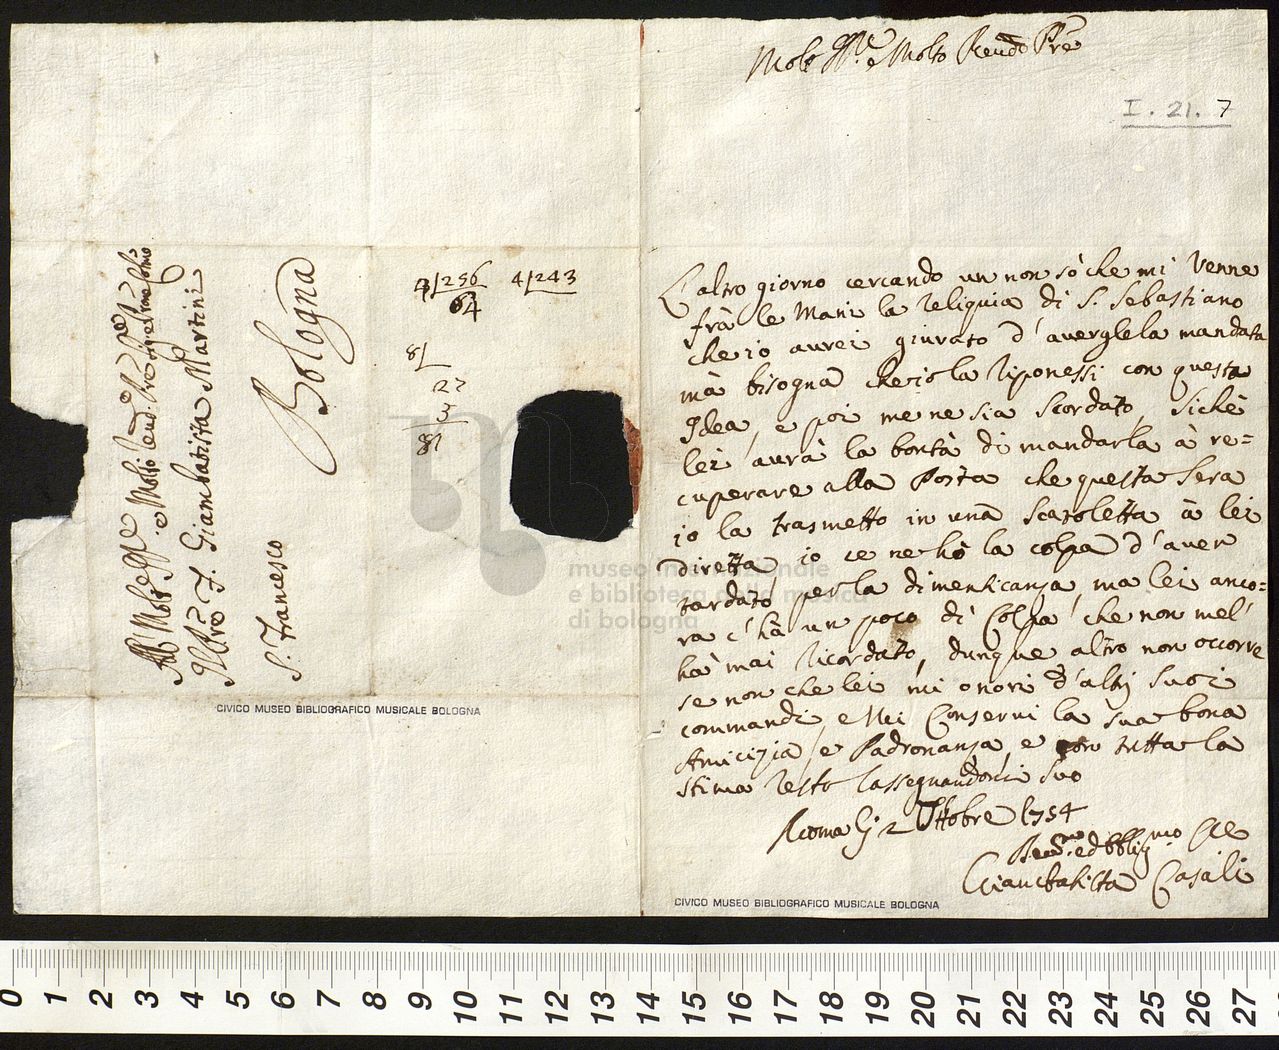 Molt Ill.re e Molto Revdo Pre
I. 21. 7
L'altro giorno cercando un non sò che mi venne
frà le Mani la Reliquia di S. Sebastiano
che io aurei giurato d'auerglela mandata
mà bisogna che io la riponessi con questa
Idea, e poi me ne sia scordato, sichè
lei aurà la bontà di mandarla à re=
cuperare alla Posta che questa sera
io la trasmetto in una scatoletta à lei
diretta io ce ne hò la colpa d'auer
tardato per la dimenticanza, ma lei anco=
ra c'hà un poco di Colpa che non mel'
hà mai ricordato, dunque altro non occorre
se non che lei mi onori d'altri suoi
commandi, e Mi Conserui la sua bona
Amicizia, e Padronanza, e con tutta la
stima resto rassegnandomi suo
Roma li 2 Ottobre 1754
ed Obblig.mo
Giambatista Casali
CIVICO MUSEO BIBLIOGRAFICO MUSICALE BOLOGNA
All' Molt e Molto Revd
Giambatista Martini
Bologna
S. Francesco
256
64
4/243
8/
27
3
81
CIVICO MUSEO BIBLIOGRAFICO MUSICALE BOLOGNA
museo internazionale
e biblioteca della musica
di bologna
0 1 2 3 4 5 6 7 8 9 10 11 12 13 14 15 16 17 18 19 20 21 22 23 24 25 26 27